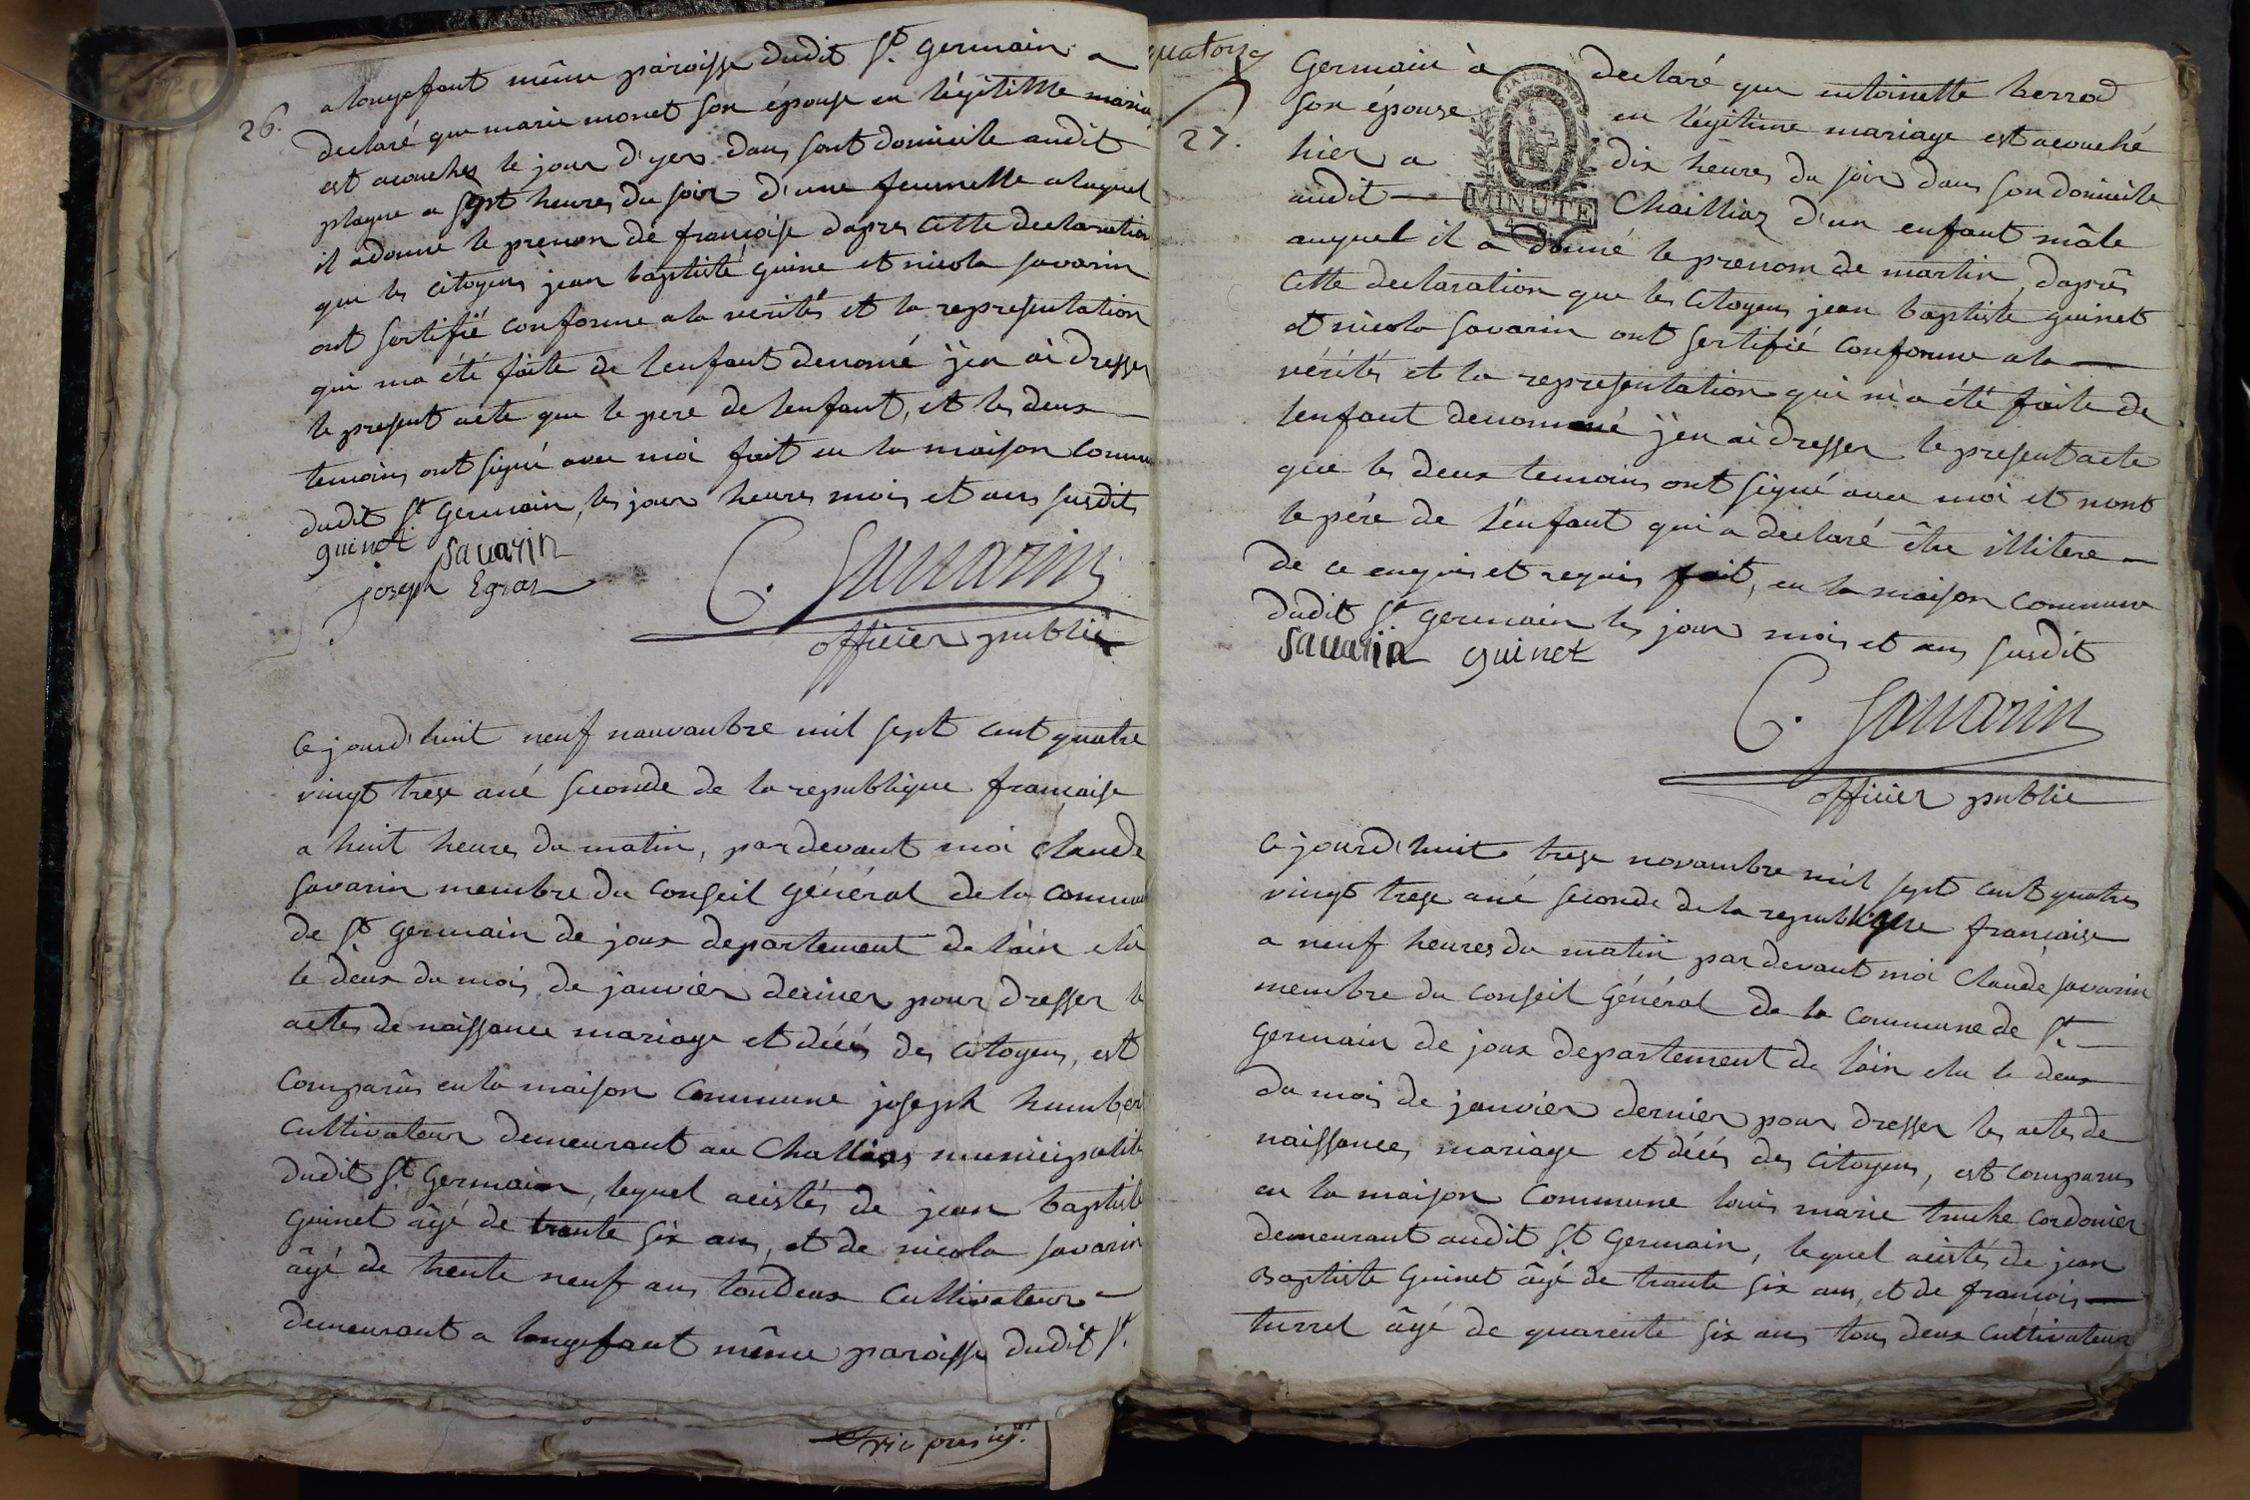 26.
a longefant même paroisse dudit St. germain a
declaré que marie monet son épouse en légitime maria
est acouchez le jour d'yer dans sont domicile audit
plagne a sept heures du soir d'une feumelle a laquel
il a donné le prenom de françoise dapres cette declaration
que les citoyens jean baptiste guine et nicola savarin
ont sertifié conforme a la verités et la representation
qui ma été faite de lenfant denomé j'en ai dresser
le present acte que le pere de lenfant, et les deux
temoins ont signé avec moi fait en la maison commu
dudit St germain, les jour heures mois et ans susdit
guinet savarin
joseph Egraz
C. Savarin
officier public
Ce jourd'huit neuf nauvanbre mil sept cent quatre
vingt treze ané seconde de la republique française
a huit heures du matin, pardevant moi claude
savarin membre du conseil général de la commune
de St germain de joux departement de l'ain elu
le deux du mois de janvier dernier pour dresser le
actes de naissance mariage et décés des citoyens, est
comparûs en la maison commune joseph humber
cultivateur demeurant au Challias municipalité
dudit St. Germain, lequel acistés de jean baptiste
guinet âgé de trante six ans, et de nicola savarin
âgé de trente neuf ans toudeux cultivateur
demeurant a longefant même paroisse dudit St.
quatorze
27.
Germain à declaré que entoinette berrod
son épouse en légitime mariage est acouché
hier a dix heures du soir dans son domicile
audit Chailliaz d'un enfant mâle
MINUTE
auquel il a donné le prenom de martin, daprès
cette declaration que les citoyens jean baptiste guinet
et nicola savarin ont sertifié conforme a la
vérités et la representation qui m'a été faite de
lenfant denommé j'en ai dresser le present acte
que les deux temoins ont signé avec moi et nont
le pére de l'énfant qui a declaré être illitere
de ce enquis et requis fait, en la maison commune
dudit St germain les jour mois et ans susdit
savarin guinet
C. Savarin
officier public
Ce jourd'huit treze novambre mil sept cent quatres
vingt treze ané seconde de la republique française
a neuf heures du matin pardevant moi Claude savarin
membre du conseil général de la commune de St.
germain de joux departement de l'ain elu le deux
du mois de janvier dernier pour dresser les actes de
naissances, mariage et décés des citoyens, est comparus
en la maison commune louis marie truche cordonier
demeurant audit St Germain, lequel acistés de jean
Baptiste Guinet âgé de trante six ans, et de françois
turrel âgé de quarente six ans tous deux cultivateur